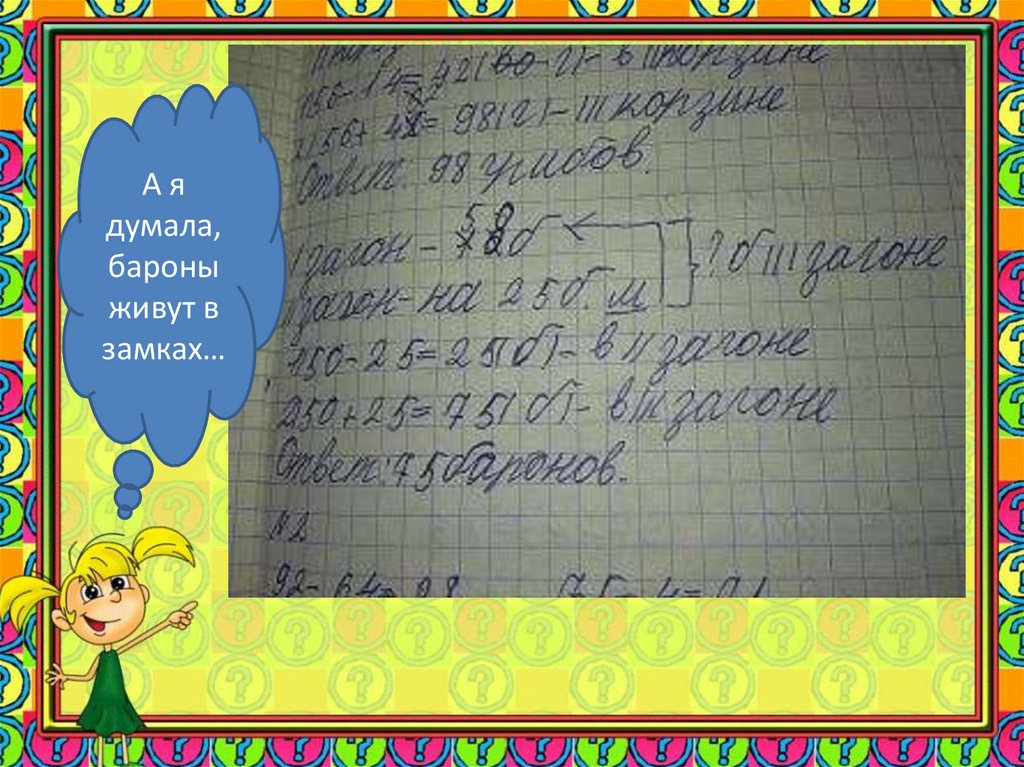 А я
думала,
бароны
живут в
замках…
156-14=42( во г)- в II корзине
2) 56+42=98(г)-III корзине
Ответ: 98 грибов.
I загон - 50б
? б III загоне
II загон- на 25б. м
1) 50-25=25(б)- в II загоне
2) 50+25=75(б)- в III загоне
Ответ: 75баронов.
№2
92- 64=28
75- 4=71